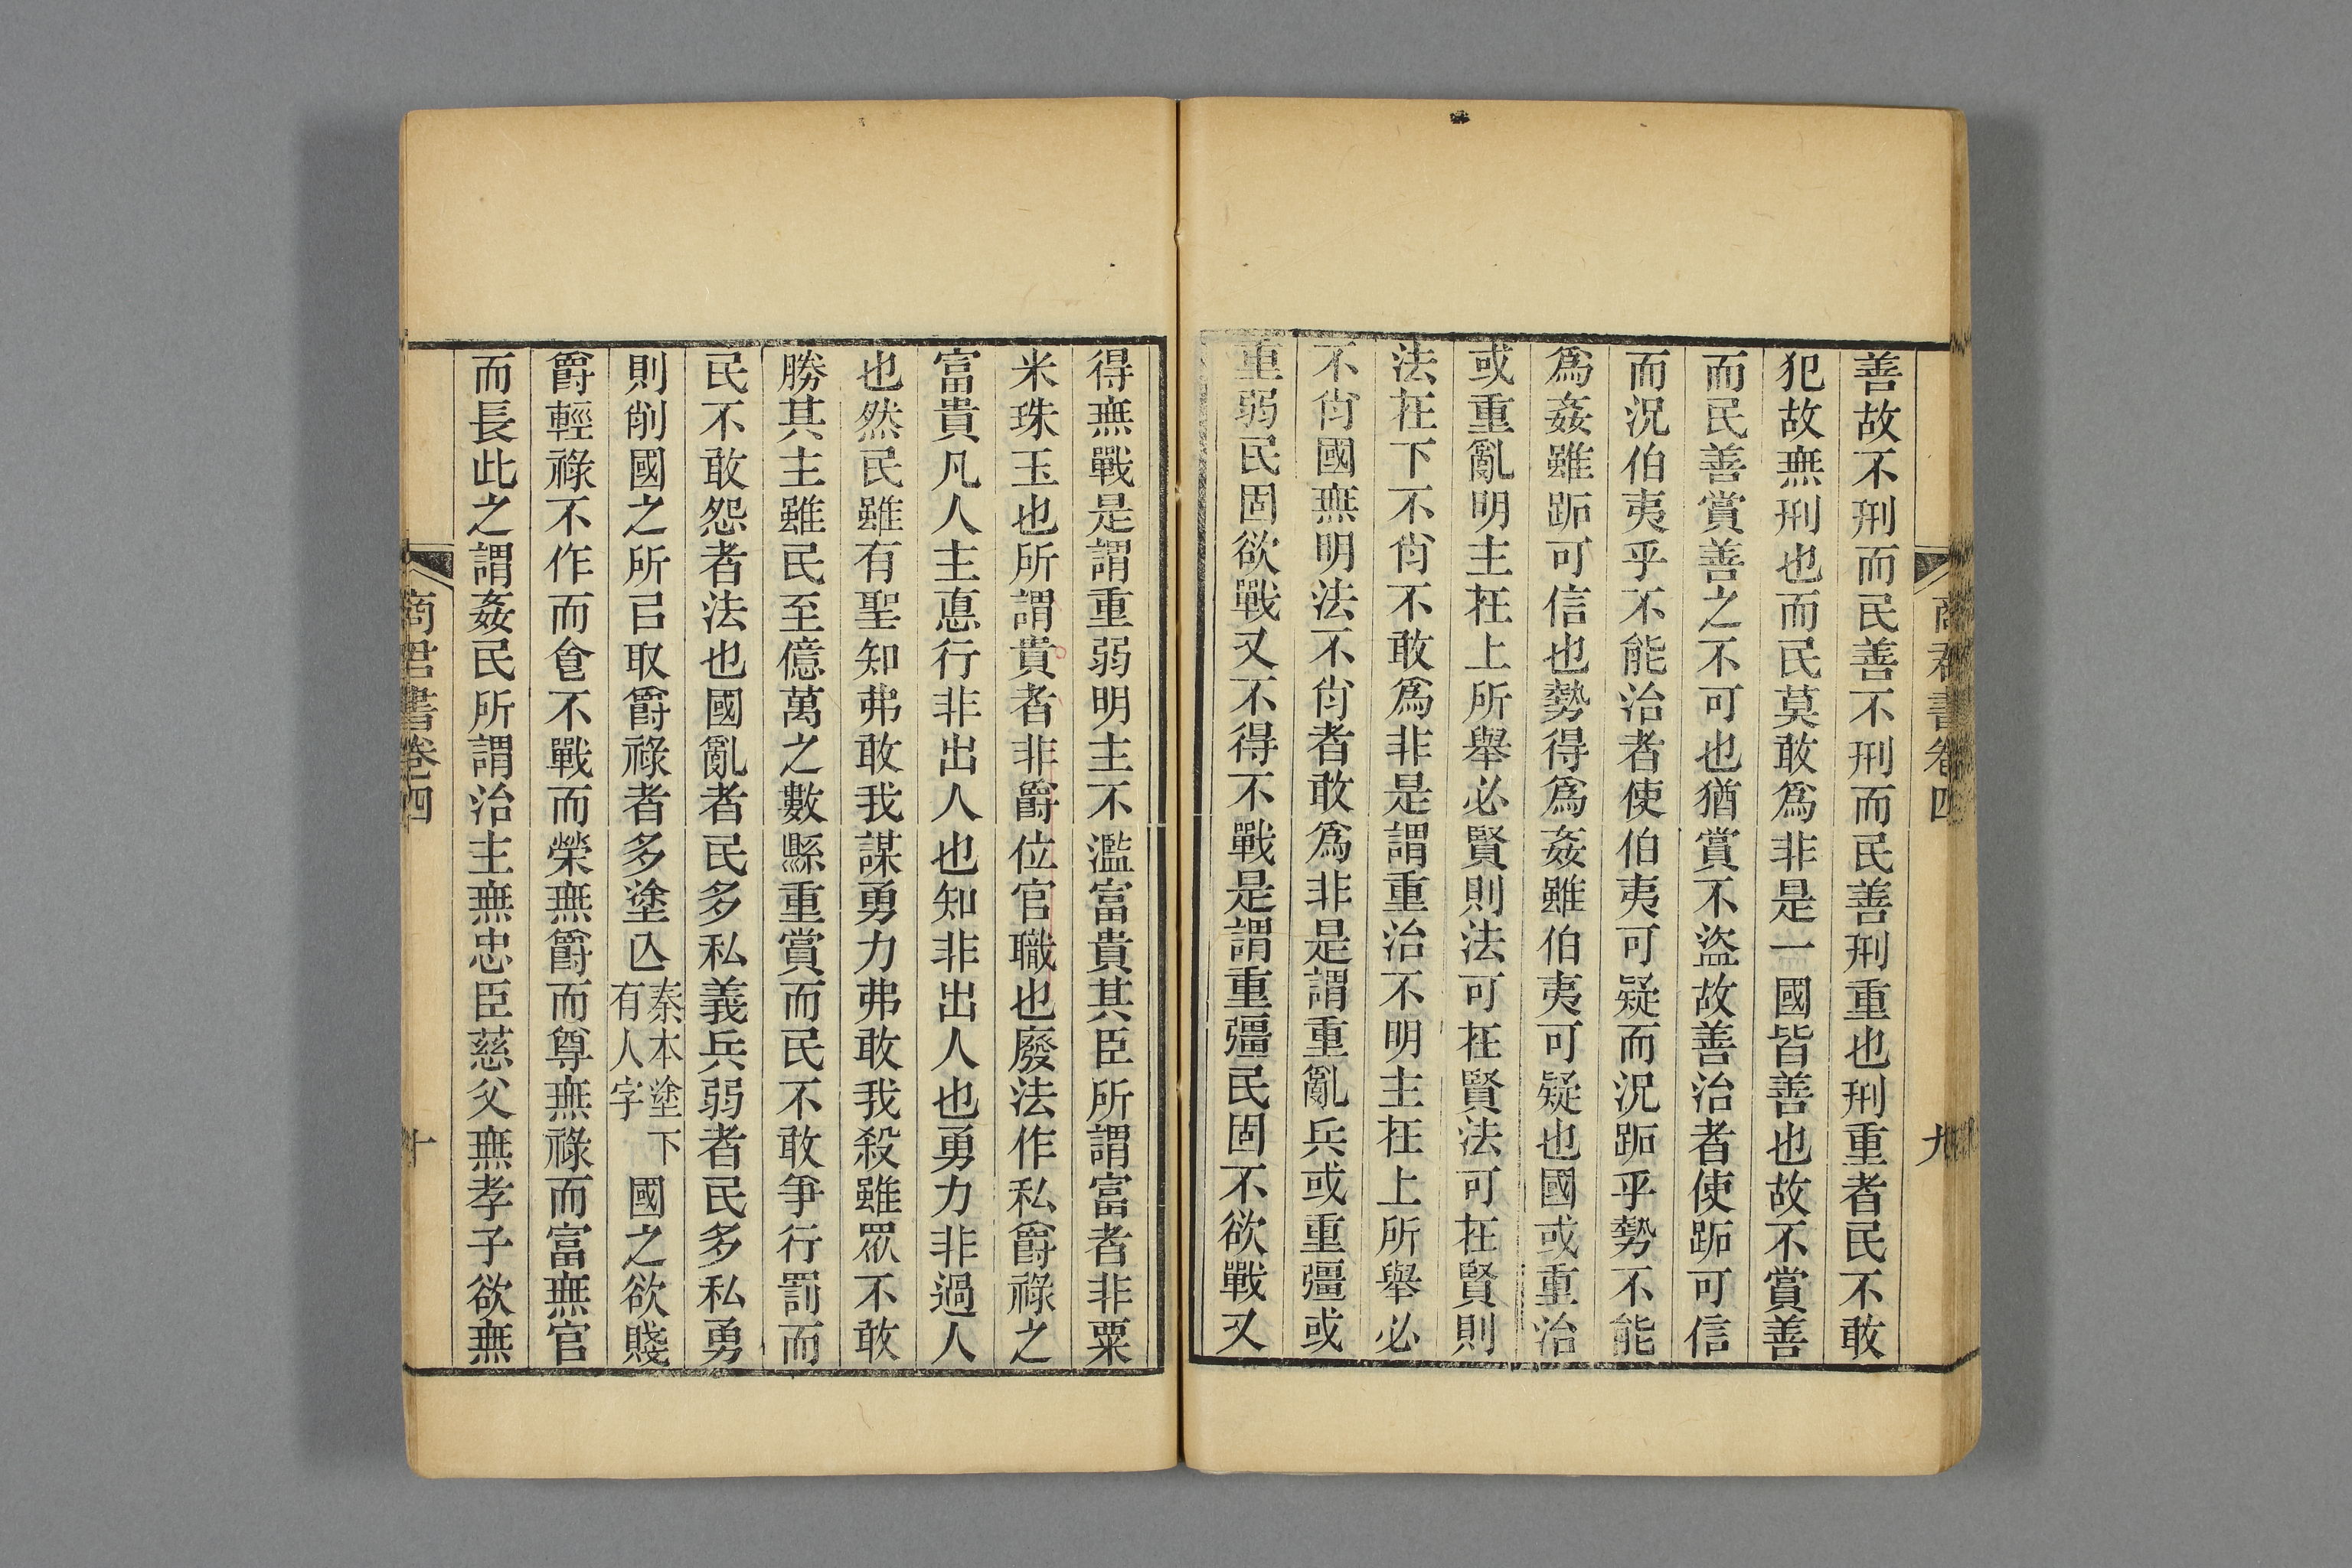 善故不刑而民善不刑而民善刑重也刑重者民不敢
犯故無刑也而民莫敢爲非是一國皆善也故不賞善
而民善賞善之不可也猶賞不盜故善治者使跖可信
而況伯夷乎不能治者使伯夷可疑而況跖乎勢不能
爲姦雖跖可信也勢得爲姦雖伯夷可疑也國或重治
或重亂明主在上所舉必賢則法可在賢法可在賢則
法在下不肖不敢爲非是謂重治不明主在上所舉必
不肖國無明法不肖者敢爲非是謂重亂兵或重彊或
重弱民固欲戰又不得不戰是謂重彊民固不欲戰又
商君書卷四
九
得無戰是謂重弱明主不濫富貴其臣所謂富者非粟
米珠玉也所謂貴者非爵位官職也廢法作私爵祿之
富貴凡人主悳行非出人也知非出人也勇力非過人
也然民雖有聖知弗敢我謀勇力弗敢我殺雖眾不敢
勝其主雖民至億萬之數縣重賞而民不敢爭行罰而
民不敢怨者法也國亂者民多私義兵弱者民多私勇
則削國之所㠯取爵祿者多塗亾秦本塗下有人字國之欲賤
爵輕祿不作而食不戰而榮無爵而尊無祿而富無官
而長此之謂姦民所謂治主無忠臣慈父無孝子欲無
商君書卷四
十